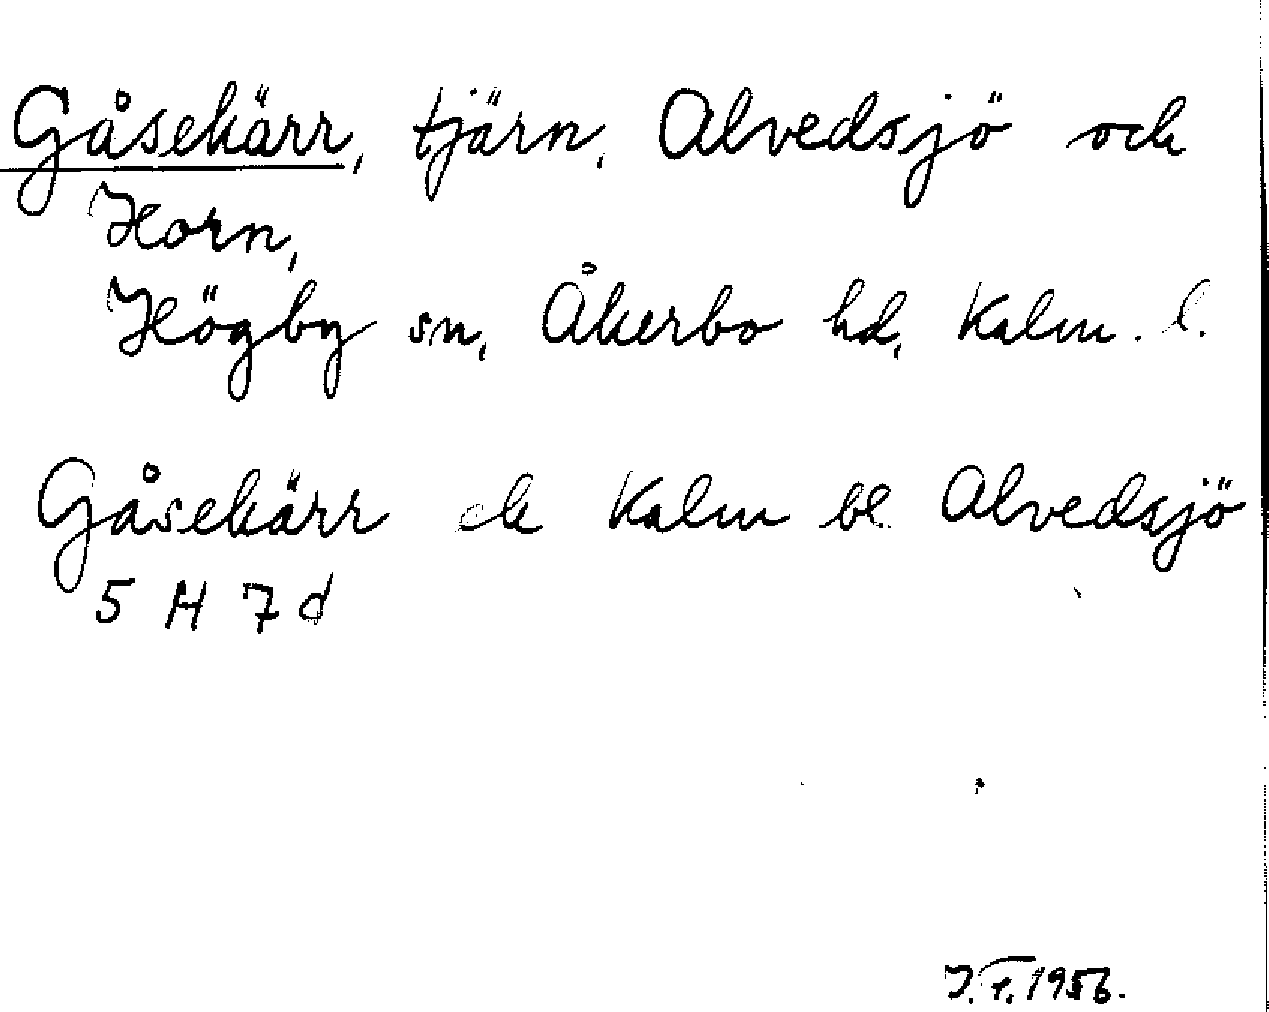 Gåsekärr, tjärn, Alvedsjö och
Horn,
Högby sn, Åkerbo hd, Kalm. l.
Gåsekärr ek Kalm bl Alvedsjö
5 H 7 d
J.F. 1956.